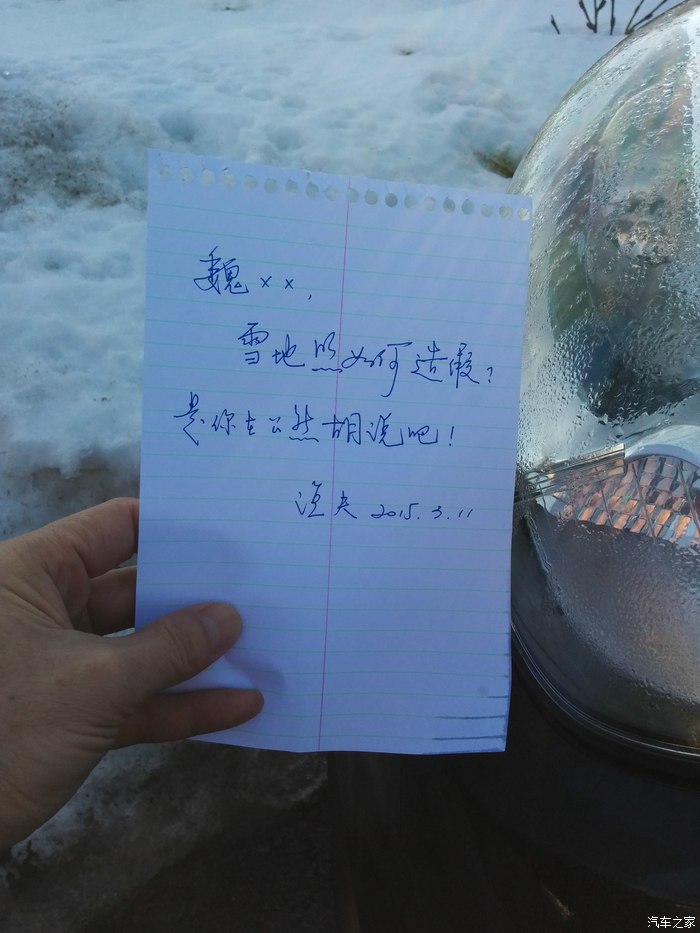 魏××,
雪地照如何造假?
是你在公然胡说吧!
渔夫 2015.3.11
汽车之家